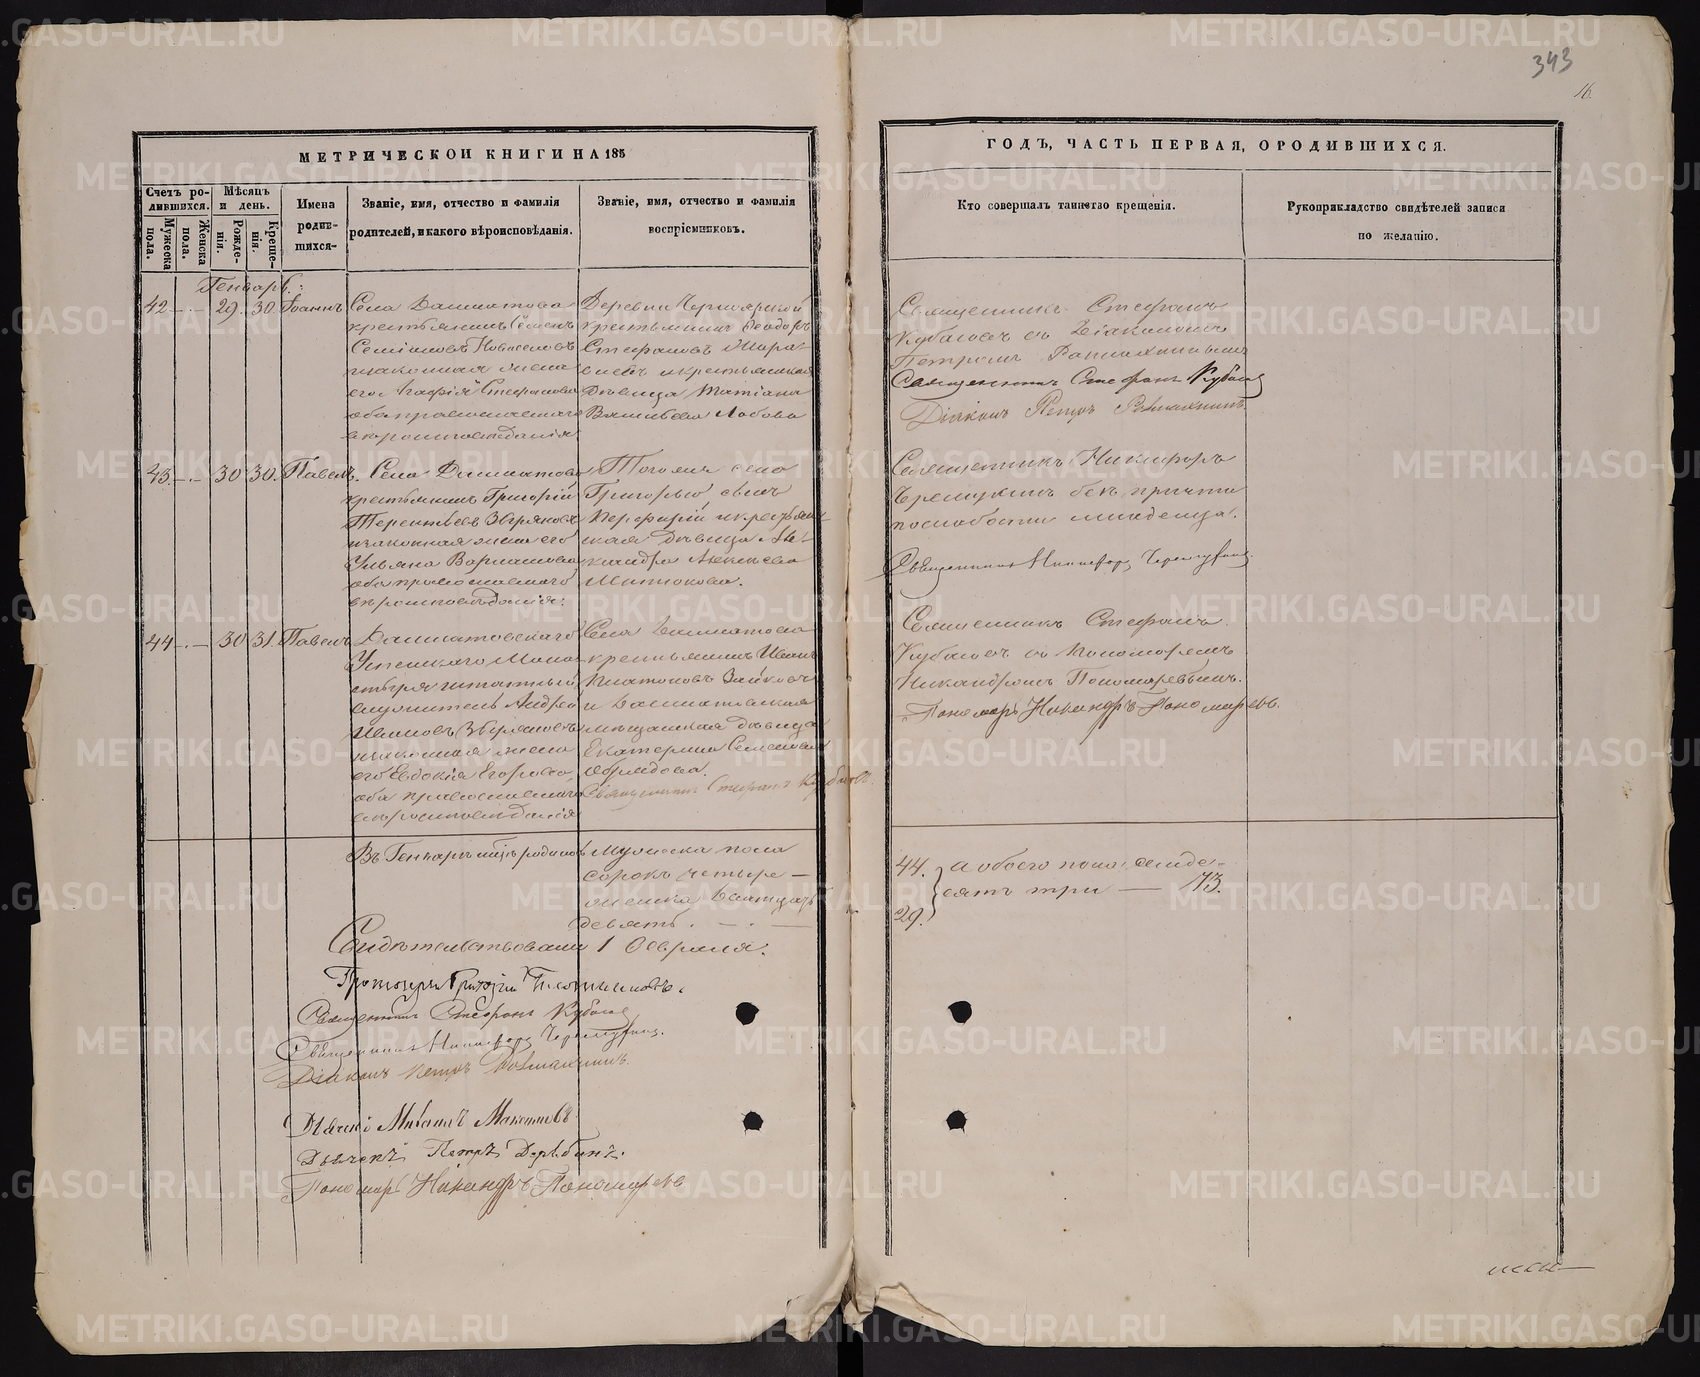 343
16.
МЕТРИЧЕСКОЙ КНИГИ НА 185
ГОДЪ, ЧАСТЬ ПЕРВАЯ, О РОДИВШИХСЯ.
Счетъ ро-
дившихся.
Мужеска
пола.
Женска
пола.
Мѣсяцъ
и день.
Рожде-
нія.
Креще-
нія.
Имена
родив-
шихся-
Званіе, имя, отчество и фамилія
родителей, и какого вѣроисповѣданія.
Званіе, имя, отчество и фамилія
воспріємниковъ.
Кто совершалъ таинство крещенія.
Рукоприкладство свидѣтелей записи
по желанію.
Генварь:
42 29. 30. Іоаннъ
Села Далматова
крестьянинъ Семенъ
Симіоновъ Новоселовъ
и законная жена
его Агафія Стефанова
оба православнаго
вѣроисповѣданія
Деревни Черноярской
крестьянинъ Ѳеодоръ
Стефановъ
и крестьянская
дѣвица Татіана
Васильева Лобова
Священникъ Стефанъ
Кубасовъ съ Діакономъ
Петромъ
Священникъ Стефанъ Кубасов
Діаконъ Петръ
43. 30 30. Павелъ
Села Далматова
крестьянинъ Григорій
Терентьевъ Зыряновъ
и законная жена его
Ульяна Варламова
оба православнаго
вѣроисповѣданія:
Тогоже села
Григорьевъ сынъ
Перфирій и крестьян-
ская дѣвица Але-
ксандра Алексѣева
Священникъ Никифоръ
безъ причта
по слабости младенца.
Священникъ Никифоръ
44 30 31. Павелъ
Далматовскаго
Успенскаго Мона-
стыря штатный
служитель Андрей
Ивановъ Зыряновъ
и законная жена
его Евдокія Егорова,
оба православнаго
вѣроисповѣданія
Села Далматова
крестьянинъ Иванъ
Платоновъ Зайковъ
и Далматовская
мѣщанская дѣвица
Екатерина Семенова
Священникъ Стефанъ Кубасовъ.
Священникъ Стефанъ
Кубасовъ съ Пономаремъ
Никандромъ Пономаревымъ.
Пономарь Никандръ Пономаревъ.
Въ Генварѣ мѣсяцѣ родилось
Мужеска пола
сорокъ четыре —
женска двадцать
девять.
44.
29.
а обоего пола семде-
сятъ три — 73.
Свидѣтельствовали 1 Февраля:
Протоіерей Григорій Плотниковъ.
Священникъ Стефанъ Кубасов
Священникъ Никифоръ
Діаконъ Петръ
Дьячекъ
Дьячекъ Петръ
Пономарь Никандръ Пономаревъ
METRIKI.GASO-URAL.RU